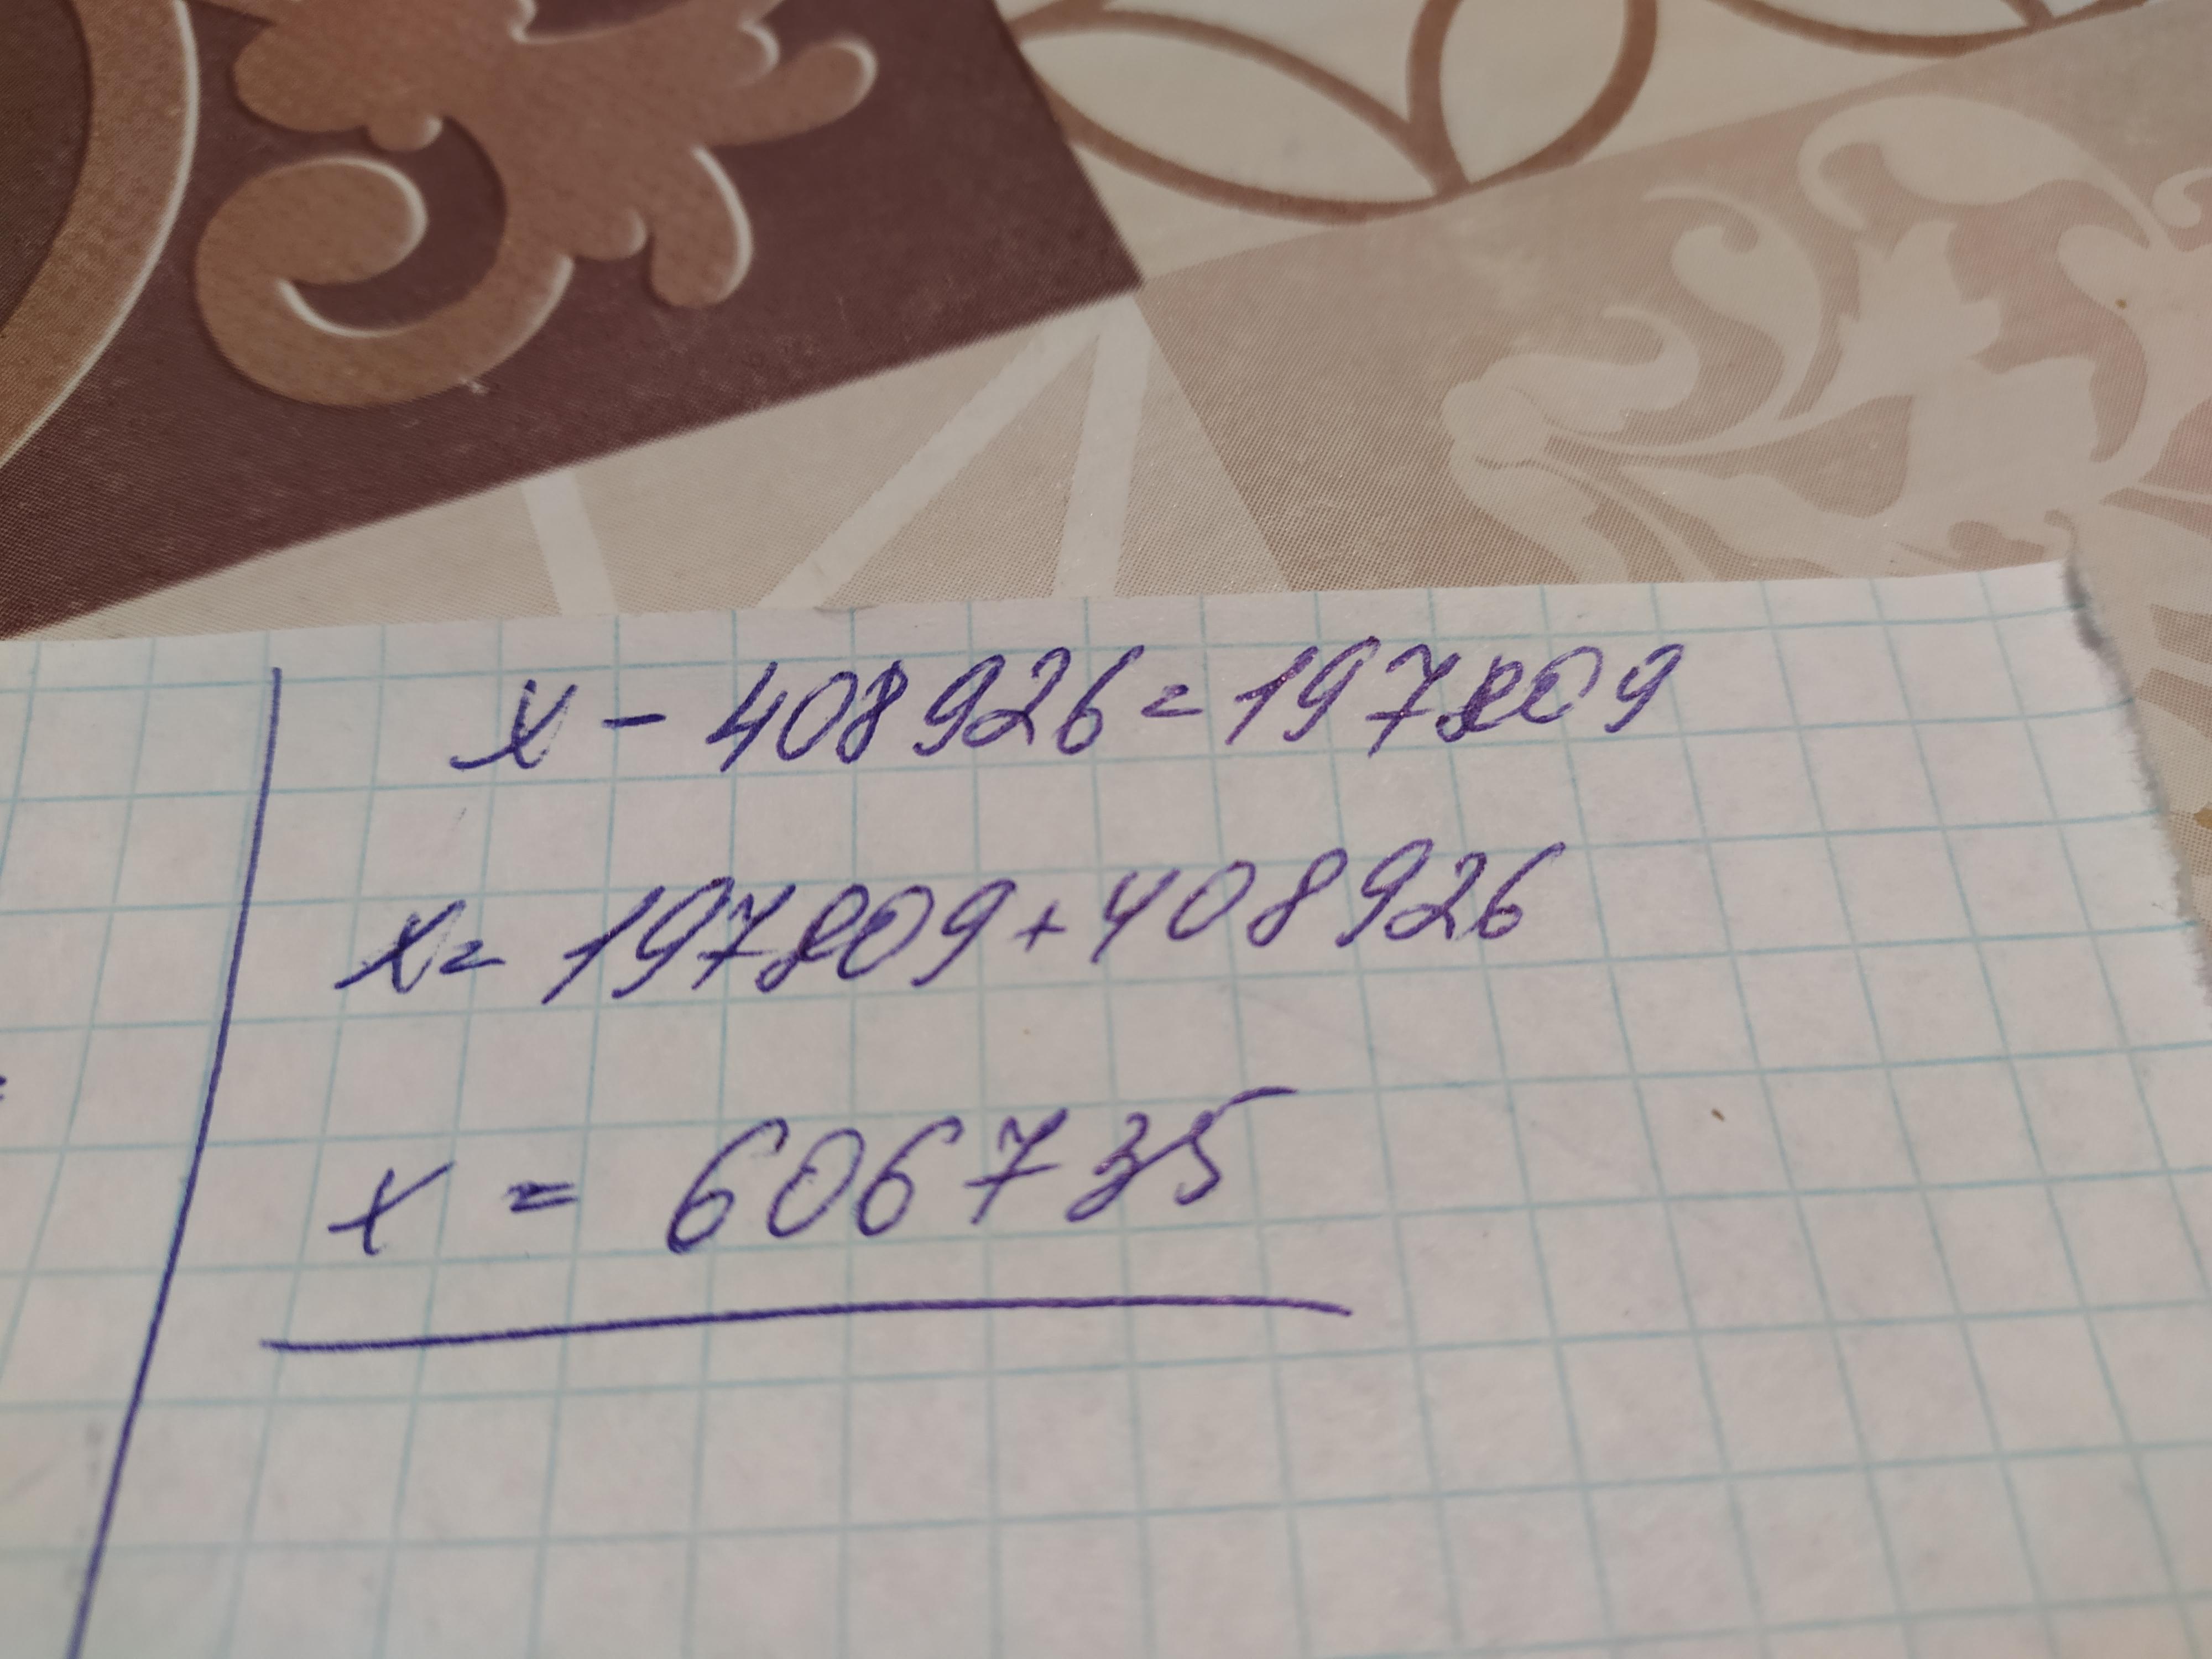 x - 408926 = 197809
x = 197809 + 408926
x = 606735